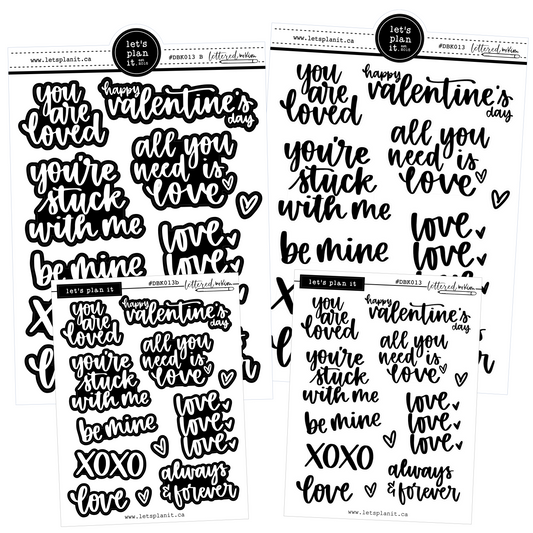 let's
plan
it.
est. 2015
www.letsplanit.ca
#DBK013 B
lettered by kim
you
are
loved
happy
valentine's
day
you're
stuck
with me
all you
need is
love
be mine
love
love
let's
plan
it.
est. 2015
www.letsplanit.ca
#DBK013
lettered by kim
you
are
loved
happy
valentine's
day
you're
stuck
with me
all you
need is
love
be mine
love
love
let's plan it
#DBK013b
lettered by kim
you
are
loved
happy
valentine's
day
you're
stuck
with me
all you
need is
love
be mine
love
love
love
XOXO
love
always
& forever
www.letsplanit.ca
let's plan it
#DBK013
lettered by kim
you
are
loved
happy
valentine's
day
you're
stuck
with me
all you
need is
love
be mine
love
love
love
XOXO
love
always
& forever
www.letsplanit.ca